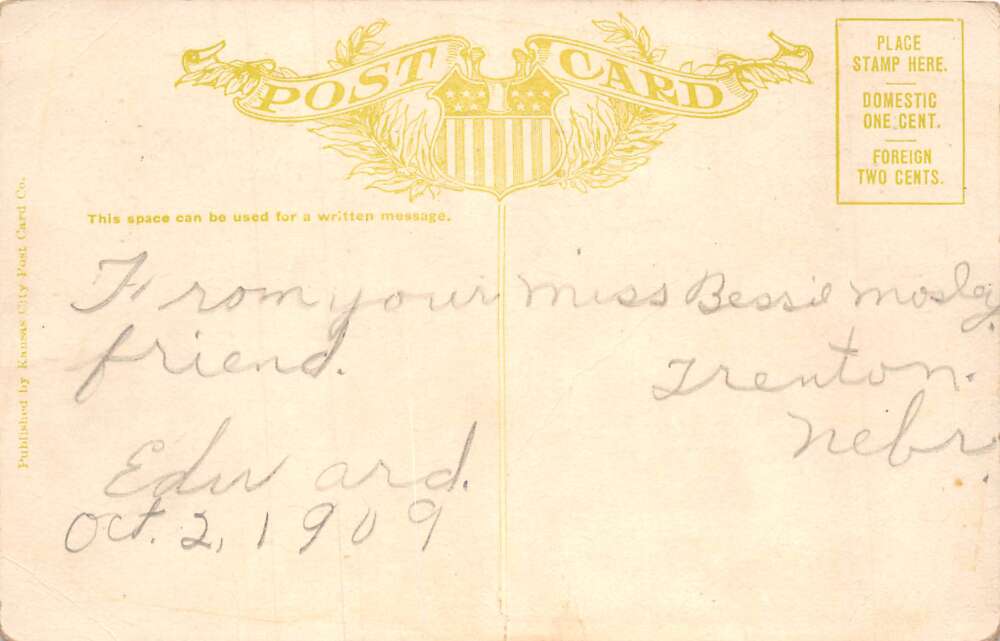 POST CARD
PLACE
STAMP HERE.
DOMESTIC
ONE CENT.
FOREIGN
TWO CENTS.
This space can be used for a written message.
Published by Kansas City Post Card Co.
From your
friend.
Edward.
Oct. 2, 1909
Miss Bessie Mosley
Trenton.
Nebr.